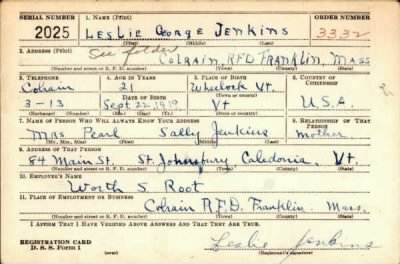 SERIAL NUMBER 1. NAME (Print) ORDER NUMBER
2025 LESLIE GEORGE JENKINS 3332
(First) (Middle) (Last)
2. ADDRESS (Print) See folder
COLRAIN, RFD FRANKLIN, MASS
(Number and street or R. F. D. number) (Town) (County) (State)
3. TELEPHONE 4. AGE IN YEARS 5. PLACE OF BIRTH 6. COUNTRY OF CITIZENSHIP
Colrain 21 Wheelock Vt.
DATE OF BIRTH (Town or county)
3-13 Sept 22, 1919 Vt U.S.A.
(Exchange) (Number) (Mo.) (Day) (Yr.) (State or country)
7. NAME OF PERSON WHO WILL ALWAYS KNOW YOUR ADDRESS 8. RELATIONSHIP OF THAT PERSON
Mrs. Pearl Sally Jenkins Mother
(Mr., Mrs., Miss) (First) (Middle) (Last)
9. ADDRESS OF THAT PERSON
84 Main St. St. Johnsbury, Caledonia, Vt.
(Number and street or R. F. D. number) (Town) (County) (State)
10. EMPLOYER'S NAME
Worth S. Root
11. PLACE OF EMPLOYMENT OR BUSINESS
Colrain R.F.D. Franklin Mass.
(Number and street or R. F. D. number) (Town) (County) (State)
I AFFIRM THAT I HAVE VERIFIED ABOVE ANSWERS AND THAT THEY ARE TRUE.
REGISTRATION CARD
D. S. S. Form 1 (over) Leslie Jenkins
(Registrant's signature)